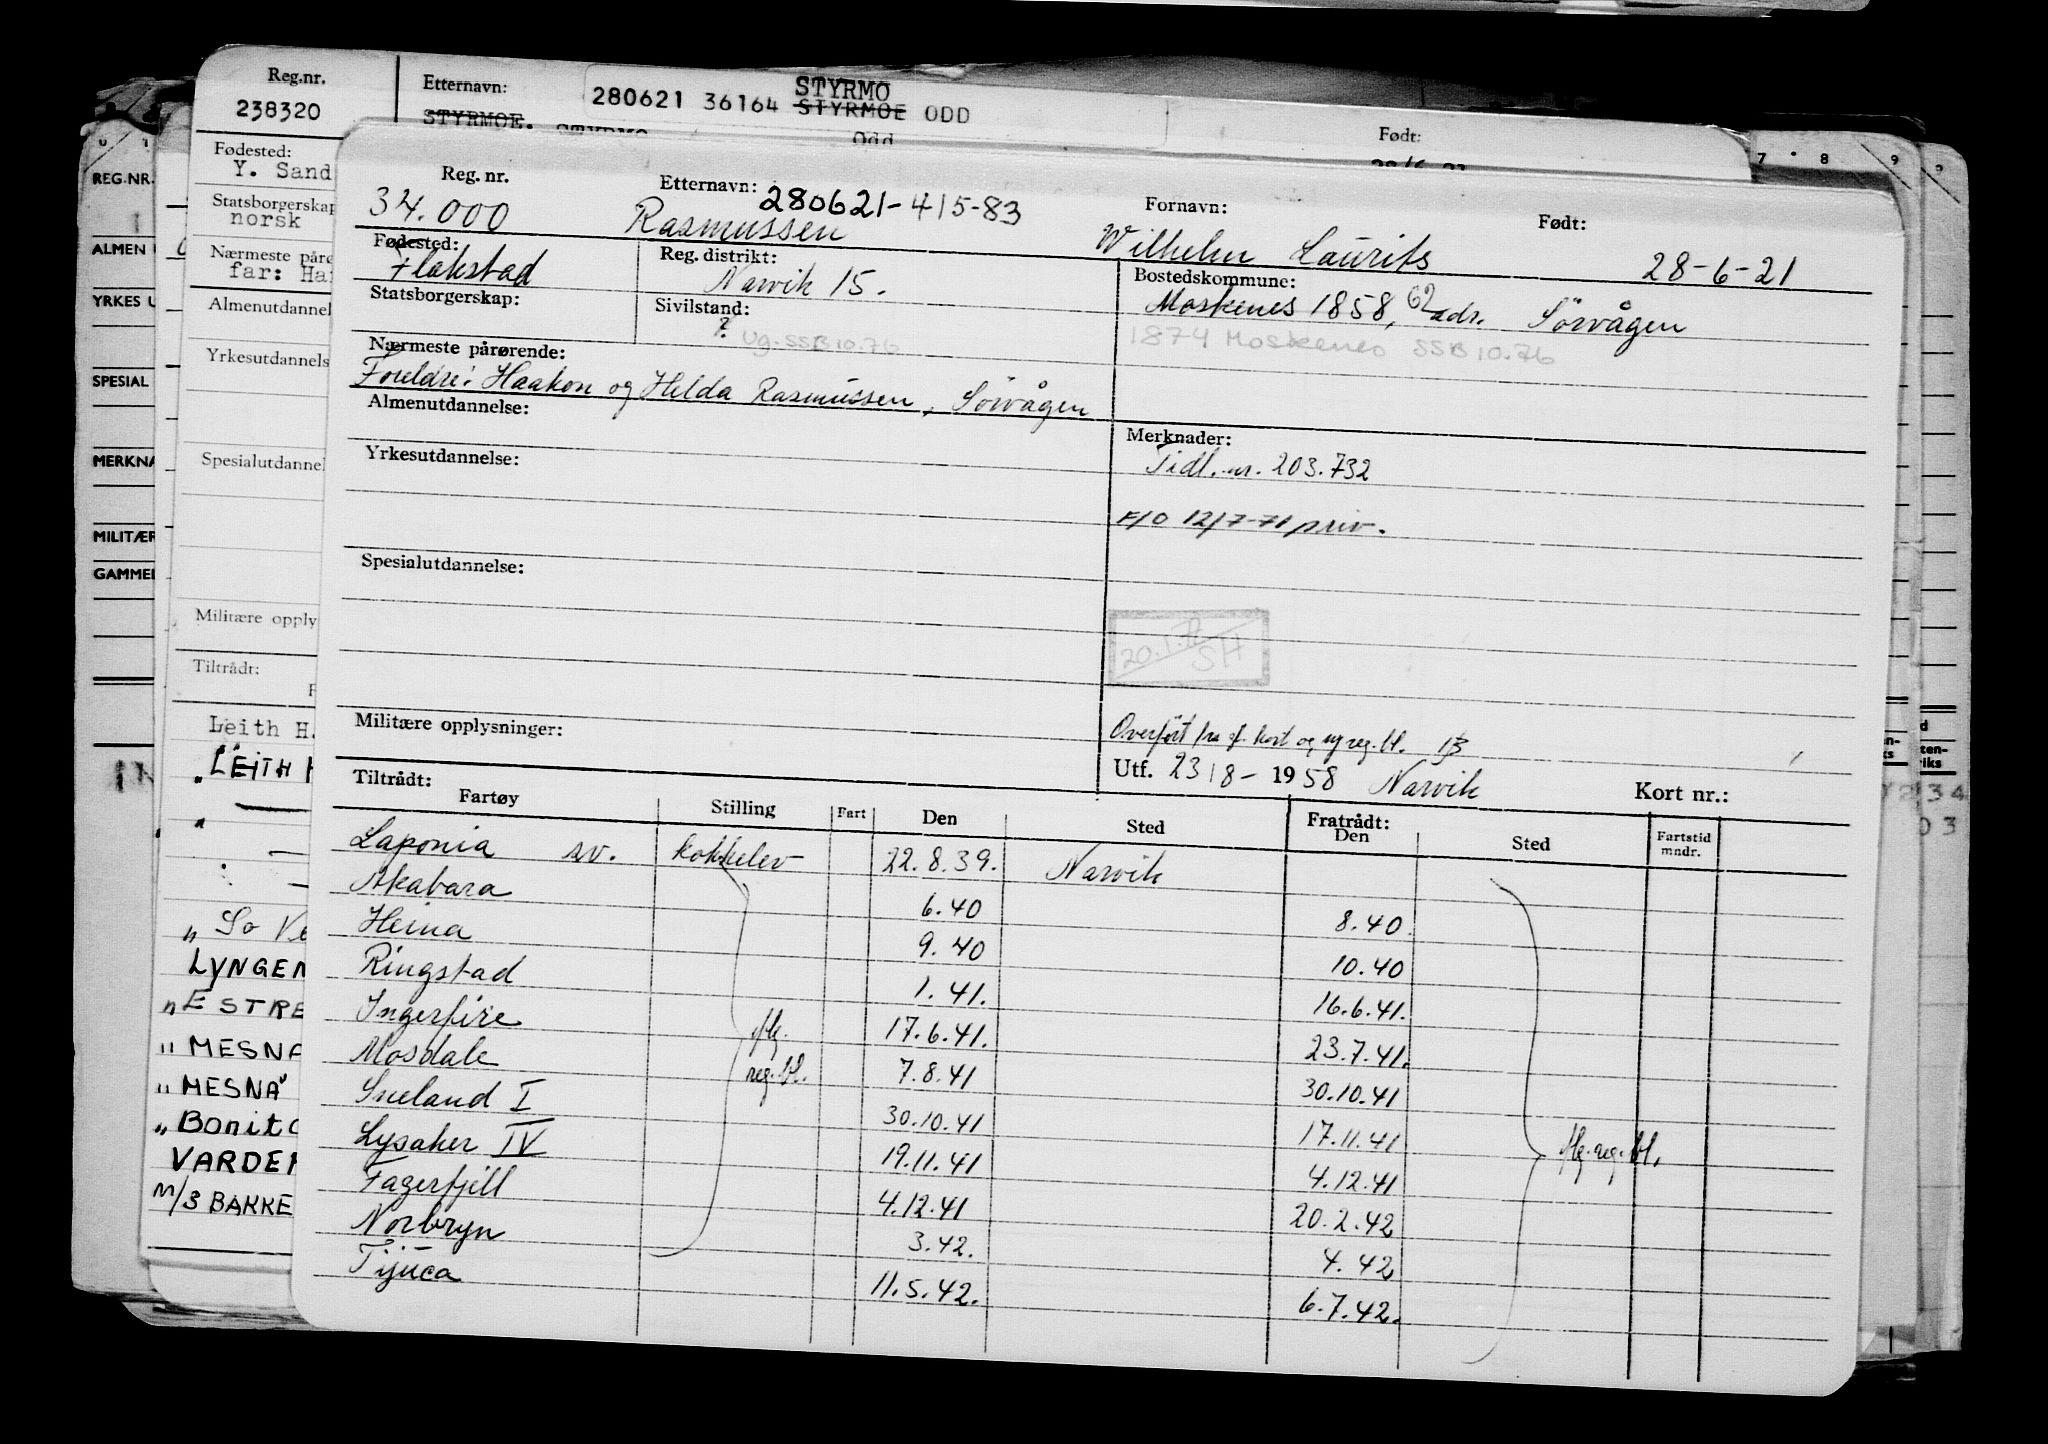 Reg.nr.
238320
Etternavn:
280621 36164 STYRMOE ODD
STYRMO
STYRMOE. STYRMO
Odd
Født:
Fødested:
Y. Sand
Statsborgerskap
norsk
Nærmeste påro
far: Ha
Almenutdannel
Yrkesutdannels
Spesialutdannel
Militære opply
Tiltrådt:
Leith H.
"LEITH H
"
"So Ve
LYNGEN
"ESTRE
"MESNA
"MESNA"
"Bonito
VARDEN
M/S BAKKE
REG.NR.
ALMEN
YRKES U
SPESIAL
MERKNA
MILITÆR
GAMMEL
7 8 9
Reg. nr.
34.000
Etternavn: 280621-415-83
Rasmussen
Fornavn:
Wilhelm Laurits
Født:
28-6-21
Fødested:
Flakstad
Reg. distrikt:
Narvik 15.
Bostedskommune:
Moskenes 1858, 62 adr. Sörvågen
1874 Moskenes SSB 10.76
Statsborgerskap:
Sivilstand:
? Ug. SSB 10.76
Nærmeste pårørende:
Foreldre: Haakon og Helda Rasmussen, Sörvågen
Almenutdannelse:
Merknader:
Tidl. nr. 203.732
F/O 12/7-71 priv.
Yrkesutdannelse:
Spesialutdannelse:
20.1.72 SH
Militære opplysninger:
Overført fra gl. kort og reg. bl.
Utf. 23/8-1958 Narvik
Kort nr.:
Tiltrådt:
Fartøy Stilling Fart Den Sted Fratrådt: Den Sted Fartstid mndr.
Laponia sv. kokkelev 22.8.39. Narvik
Akabara 6.40 8.40
Heina 9.40 10.40
Ringstad 1.41. 16.6.41.
Ingerfire 17.6.41. 23.7.41.
Mosdale 7.8.41 30.10.41
Sneland I 30.10.41 17.11.41
Lysaker IV 19.11.41 4.12.41
Fagerfjell 4.12.41 20.2.42
Norbryn 3.42. 4.42
Tijuca 11.5.42. 6.7.42.
iflg. reg. bl.
iflg. reg. bl.